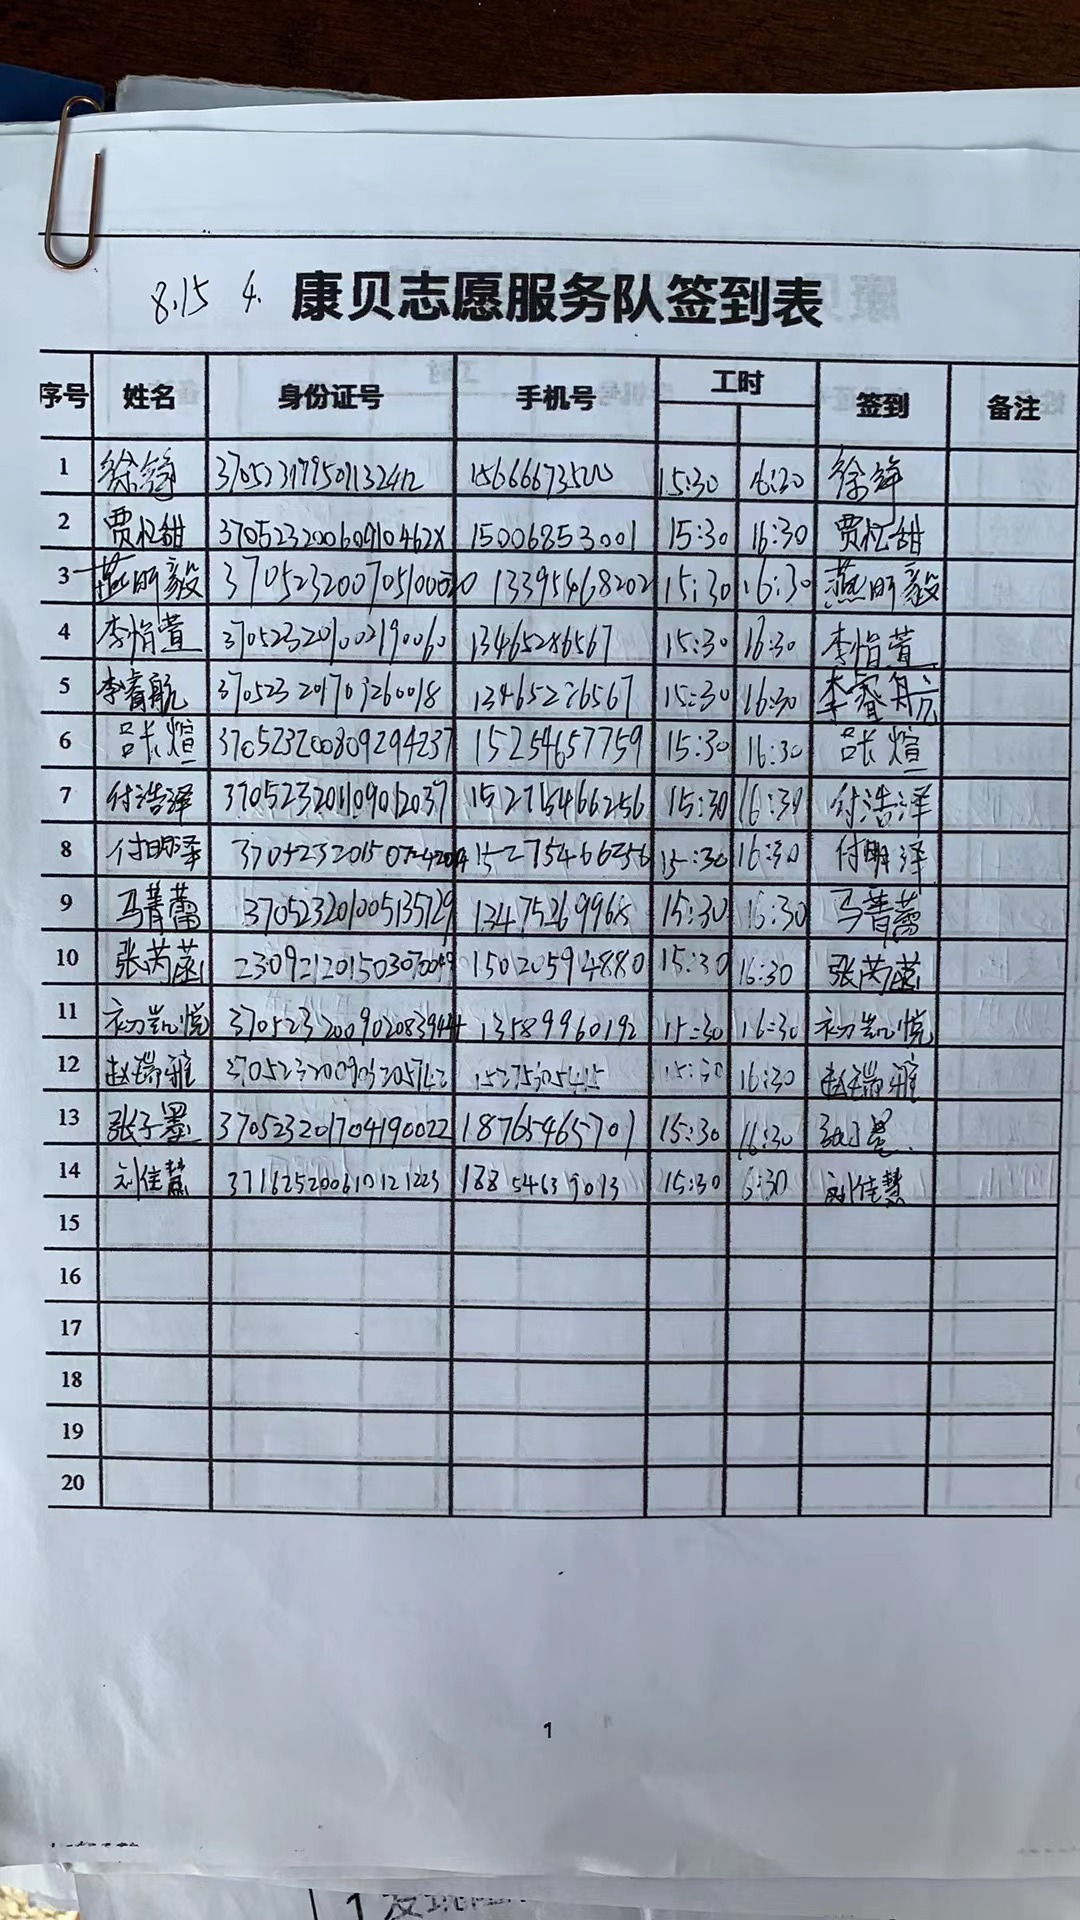 8.15 4. 康贝志愿服务队签到表
序号 姓名 身份证号 手机号 工时 签到 备注
1 15:30 16:30
2 贾松甜 37052320060910462X 15006853001 15:30 16:30 贾松甜
3 燕明毅 13395468202 15:30 16:30 燕明毅
4 李情萱 370523201002190060 13465286567 15:30 16:30 李情萱
5 李睿航 13465286567 15:30 16:30 李睿航
6 吕长煊 370523200809294237 15254657759 15:30 16:30 吕长煊
7 付浩泽 370523201109012037 15275466256 15:30 16:30 付浩泽
8 付明泽 15275466256 15:30 16:30 付明泽
9 马菁蕾 370523201005135729 13475269968 15:30 16:30 马菁蕾
10 张芮菡 15020594880 15:30 16:30 张芮菡
11 初凯悦 13589960192 15:30 16:30 初凯悦
12 赵瑞雅 15:30 16:30 赵瑞雅
13 张子墨 370523201704190022 18765465701 15:30 16:30
14 刘佳慧 371625200610121223 15:30 6:30 刘佳慧
15
16
17
18
19
20
1